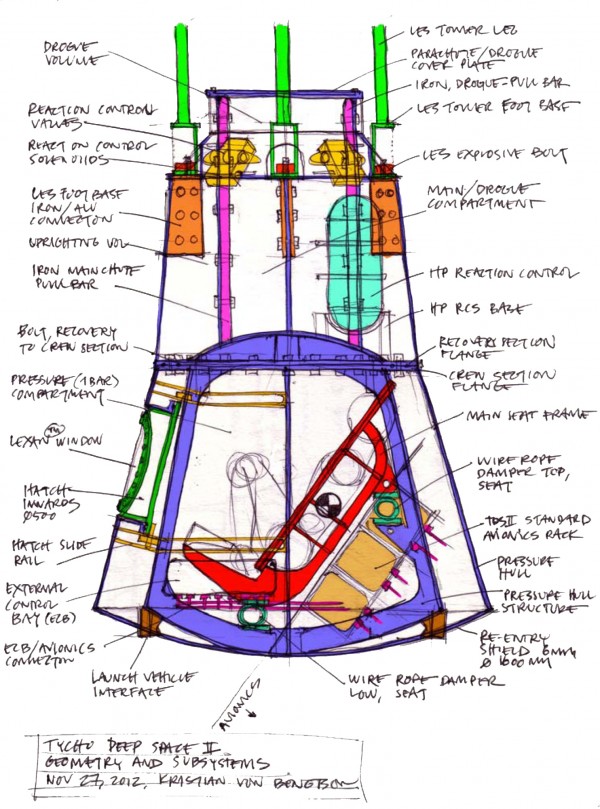 DROGUE
VOLUME
REACTION CONTROL
VALVES
REACTION CONTROL
SOLENOIDS
LES FOOT BASE
IRON/ALU
CONNECTION
UPRIGHTING VOL
IRON MAIN CHUTE
PULL BAR
BOLT, RECOVERY
TO CREW SECTION
PRESSURE (1 BAR)
COMPARTMENT
LEXAN TM WINDOW
HATCH
INWARDS
Ø500
HATCH SLIDE
RAIL
EXTERNAL
CONTROL
BAY (ECB)
ECB/AVIONICS
CONNECTION
LAUNCH VEHICLE
INTERFACE
LES TOWER LEG
PARACHUTE/DROGUE
COVER PLATE
IRON, DROGUE-PULL BAR
LES TOWER FOOT BASE
LES EXPLOSIVE BOLT
MAIN/DROGUE
COMPARTMENT
HP REACTION CONTROL
HP RCS BASE
RECOVERY SECTION
FLANGE
CREW SECTION
FLANGE
MAIN SEAT FRAME
WIRE ROPE
DAMPER TOP,
SEAT
TDSII STANDARD
AVIONICS RACK
PRESSURE
HULL
PRESSURE HULL
STRUCTURE
RE-ENTRY
SHIELD 6MM
Ø 1600 MM
WIRE ROPE DAMPER
LOW, SEAT
AVIONICS
TYCHO DEEP SPACE II
GEOMETRY AND SUBSYSTEMS
NOV 27, 2012, KRISTIAN VON BENGTSON